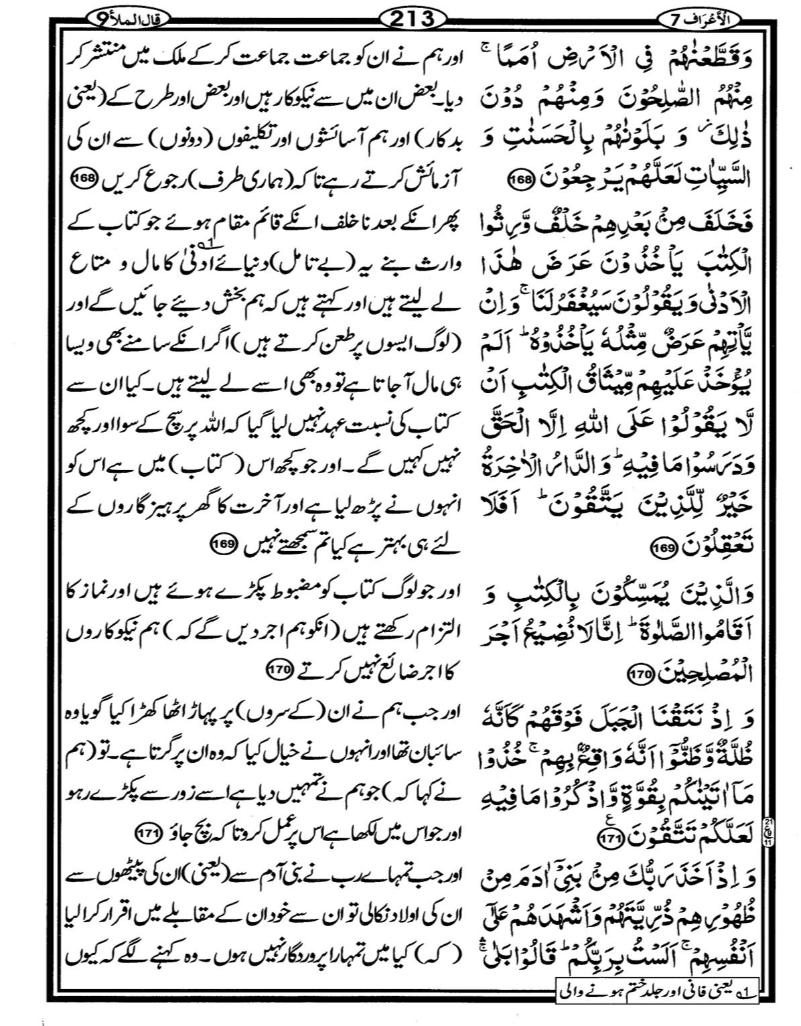 الأَعْرَاف 7
213
قال الملأ 9
وَقَطَّعْنٰهُمْ فِی الْاَرْضِ اُمَمًا ۚ
مِنْهُمُ الصّٰلِحُوْنَ وَمِنْهُمْ دُوْنَ
ذٰلِكَ ؗ وَ بَلَوْنٰهُمْ بِالْحَسَنٰتِ وَ
السَّیِّاٰتِ لَعَلَّهُمْ یَرْجِعُوْنَ 168
فَخَلَفَ مِنْۢ بَعْدِهِمْ خَلْفٌ وَّرِثُوا
الْكِتٰبَ یَاْخُذُوْنَ عَرَضَ هٰذَا
الْاَدْنٰی وَیَقُوْلُوْنَ سَیُغْفَرُ لَنَا ۚ وَاِنْ
یَّاْتِهِمْ عَرَضٌ مِّثْلُهٗ یَاْخُذُوْهُ ؕ اَلَمْ
یُؤْخَذْ عَلَیْهِمْ مِّیْثَاقُ الْكِتٰبِ اَنْ
لَّا یَقُوْلُوْا عَلَی اللّٰهِ اِلَّا الْحَقَّ
وَدَرَسُوْا مَا فِیْهِ ؕ وَالدَّارُ الْاٰخِرَةُ
خَیْرٌ لِّلَّذِیْنَ یَتَّقُوْنَ ؕ اَفَلَا
تَعْقِلُوْنَ 169
وَالَّذِیْنَ یُمَسِّكُوْنَ بِالْكِتٰبِ وَ
اَقَامُوا الصَّلٰوةَ ؕ اِنَّا لَا نُضِیْعُ اَجْرَ
الْمُصْلِحِیْنَ 170
وَ اِذْ نَتَقْنَا الْجَبَلَ فَوْقَهُمْ كَاَنَّهٗ
ظُلَّةٌ وَّظَنُّوْۤا اَنَّهٗ وَاقِعٌۢ بِهِمْ ۚ خُذُوْا
مَاۤ اٰتَیْنٰكُمْ بِقُوَّةٍ وَّاذْكُرُوْا مَا فِیْهِ
لَعَلَّكُمْ تَتَّقُوْنَ 171
وَ اِذْ اَخَذَ رَبُّكَ مِنْۢ بَنِیْۤ اٰدَمَ مِنْ
ظُهُوْرِهِمْ ذُرِّیَّتَهُمْ وَاَشْهَدَهُمْ عَلٰۤی
اَنْفُسِهِمْ ۚ اَلَسْتُ بِرَبِّكُمْ ؕ قَالُوْا بَلٰی ۛۚ
اور ہم نے ان کو جماعت جماعت کر کے ملک میں منتشر کر
دیا۔ بعض ان میں سے نیکوکار ہیں اور بعض اور طرح کے (یعنی
بدکار) اور ہم آسائشوں اور تکلیفوں (دونوں) سے ان کی
آزمائش کرتے رہے تاکہ (ہماری طرف) رجوع کریں 168
پھر انکے بعد ناخلف انکے قائم مقام ہوئے جو کتاب کے
وارث بنے یہ (بے تامل) دنیائے ادنیٰ 1؎ کا مال و متاع
لے لیتے ہیں اور کہتے ہیں کہ ہم بخش دیئے جائیں گے اور
(لوگ ایسوں پر طعن کرتے ہیں) اگر انکے سامنے بھی ویسا
ہی مال آجاتا ہے تو وہ بھی اسے لے لیتے ہیں۔ کیا ان سے
کتاب کی نسبت عہد نہیں لیا گیا کہ اللہ پر سچ کے سوا اور کچھ
نہیں کہیں گے۔ اور جو کچھ اس (کتاب) میں ہے اس کو
انہوں نے پڑھ لیا ہے اور آخرت کا گھر پرہیزگاروں کے
لئے ہی بہتر ہے کیا تم سمجھتے نہیں 169
اور جو لوگ کتاب کو مضبوط پکڑے ہوئے ہیں اور نماز کا
التزام رکھتے ہیں (انکو ہم اجر دیں گے کہ) ہم نیکوکاروں
کا اجر ضائع نہیں کرتے 170
اور جب ہم نے ان (کے سروں) پر پہاڑ اٹھا کھڑا کیا گویا وہ
سائبان تھا اور انہوں نے خیال کیا کہ وہ ان پر گرتا ہے۔ تو (ہم
نے کہا کہ) جو ہم نے تمہیں دیا ہے اسے زور سے پکڑے رہو
اور جو اس میں لکھا ہے اس پر عمل کرو تاکہ بچ جاؤ 171
اور جب تمہارے رب نے بنی آدم سے (یعنی) ان کی پیٹھوں سے
ان کی اولاد نکالی تو ان سے خود ان کے مقابلے میں اقرار کرا لیا
(کہ) کیا میں تمہارا پروردگار نہیں ہوں۔ وہ کہنے لگے کہ کیوں
1؎ یعنی فانی اور جلد ختم ہونے والی